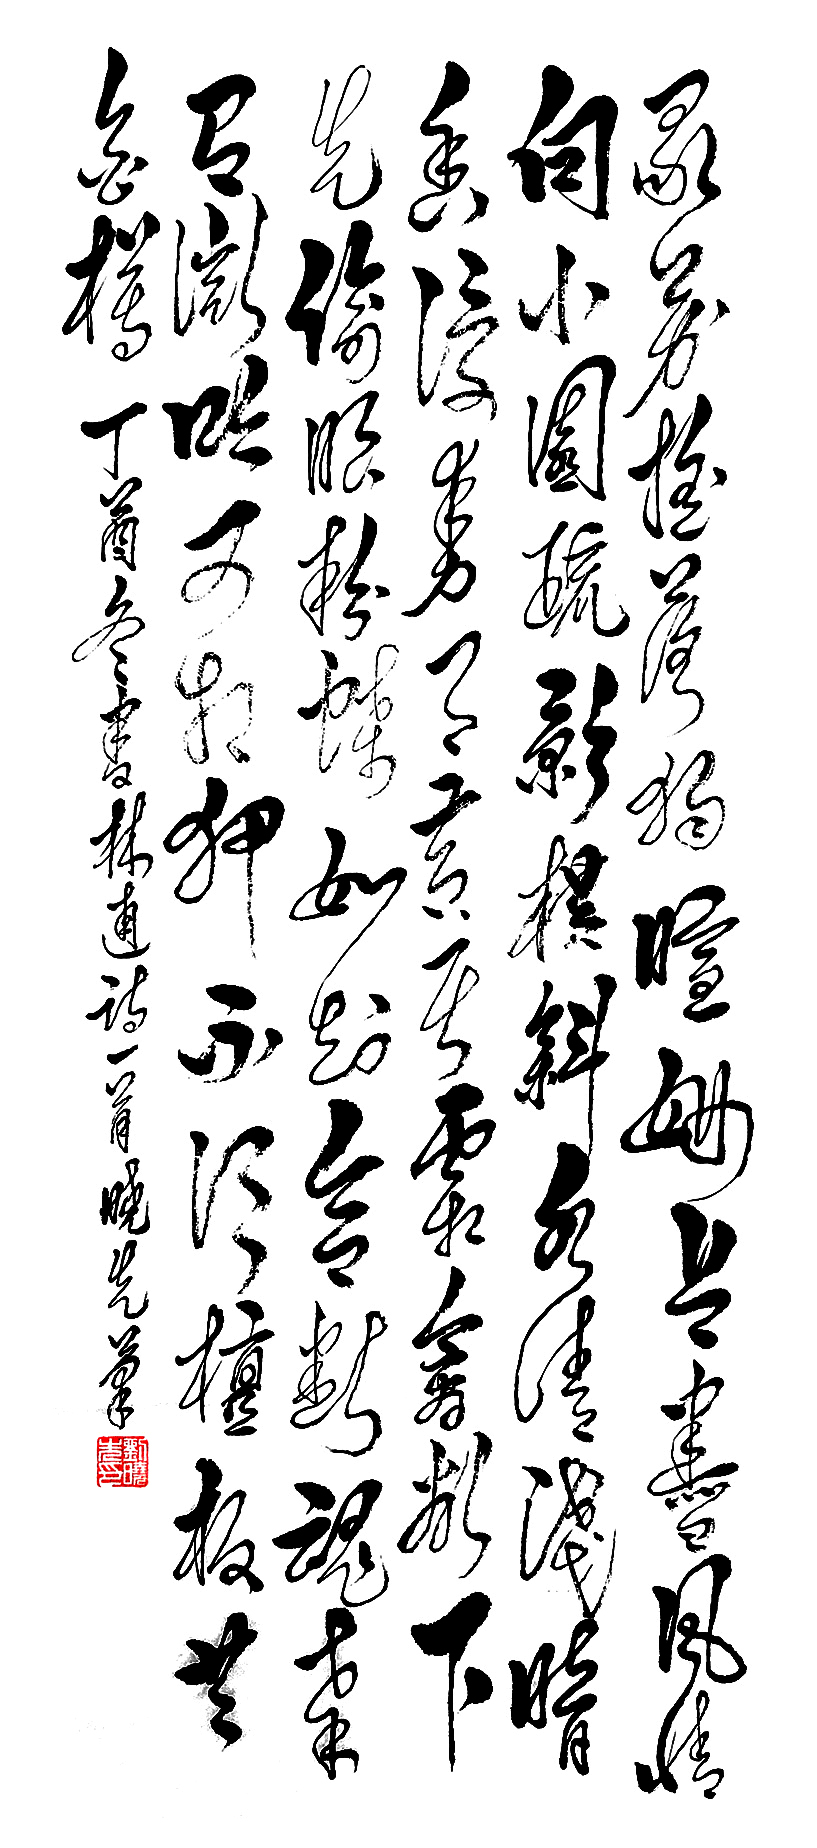 眾芳搖落獨暄妍占盡風情
向小園疏影橫斜水清淺暗
香浮動月黃昏霜禽欲下
先偷眼粉蝶如知合斷魂幸
有微吟可相狎不須檀板共
金樽 丁酉冬書林逋詩一首曉先筆